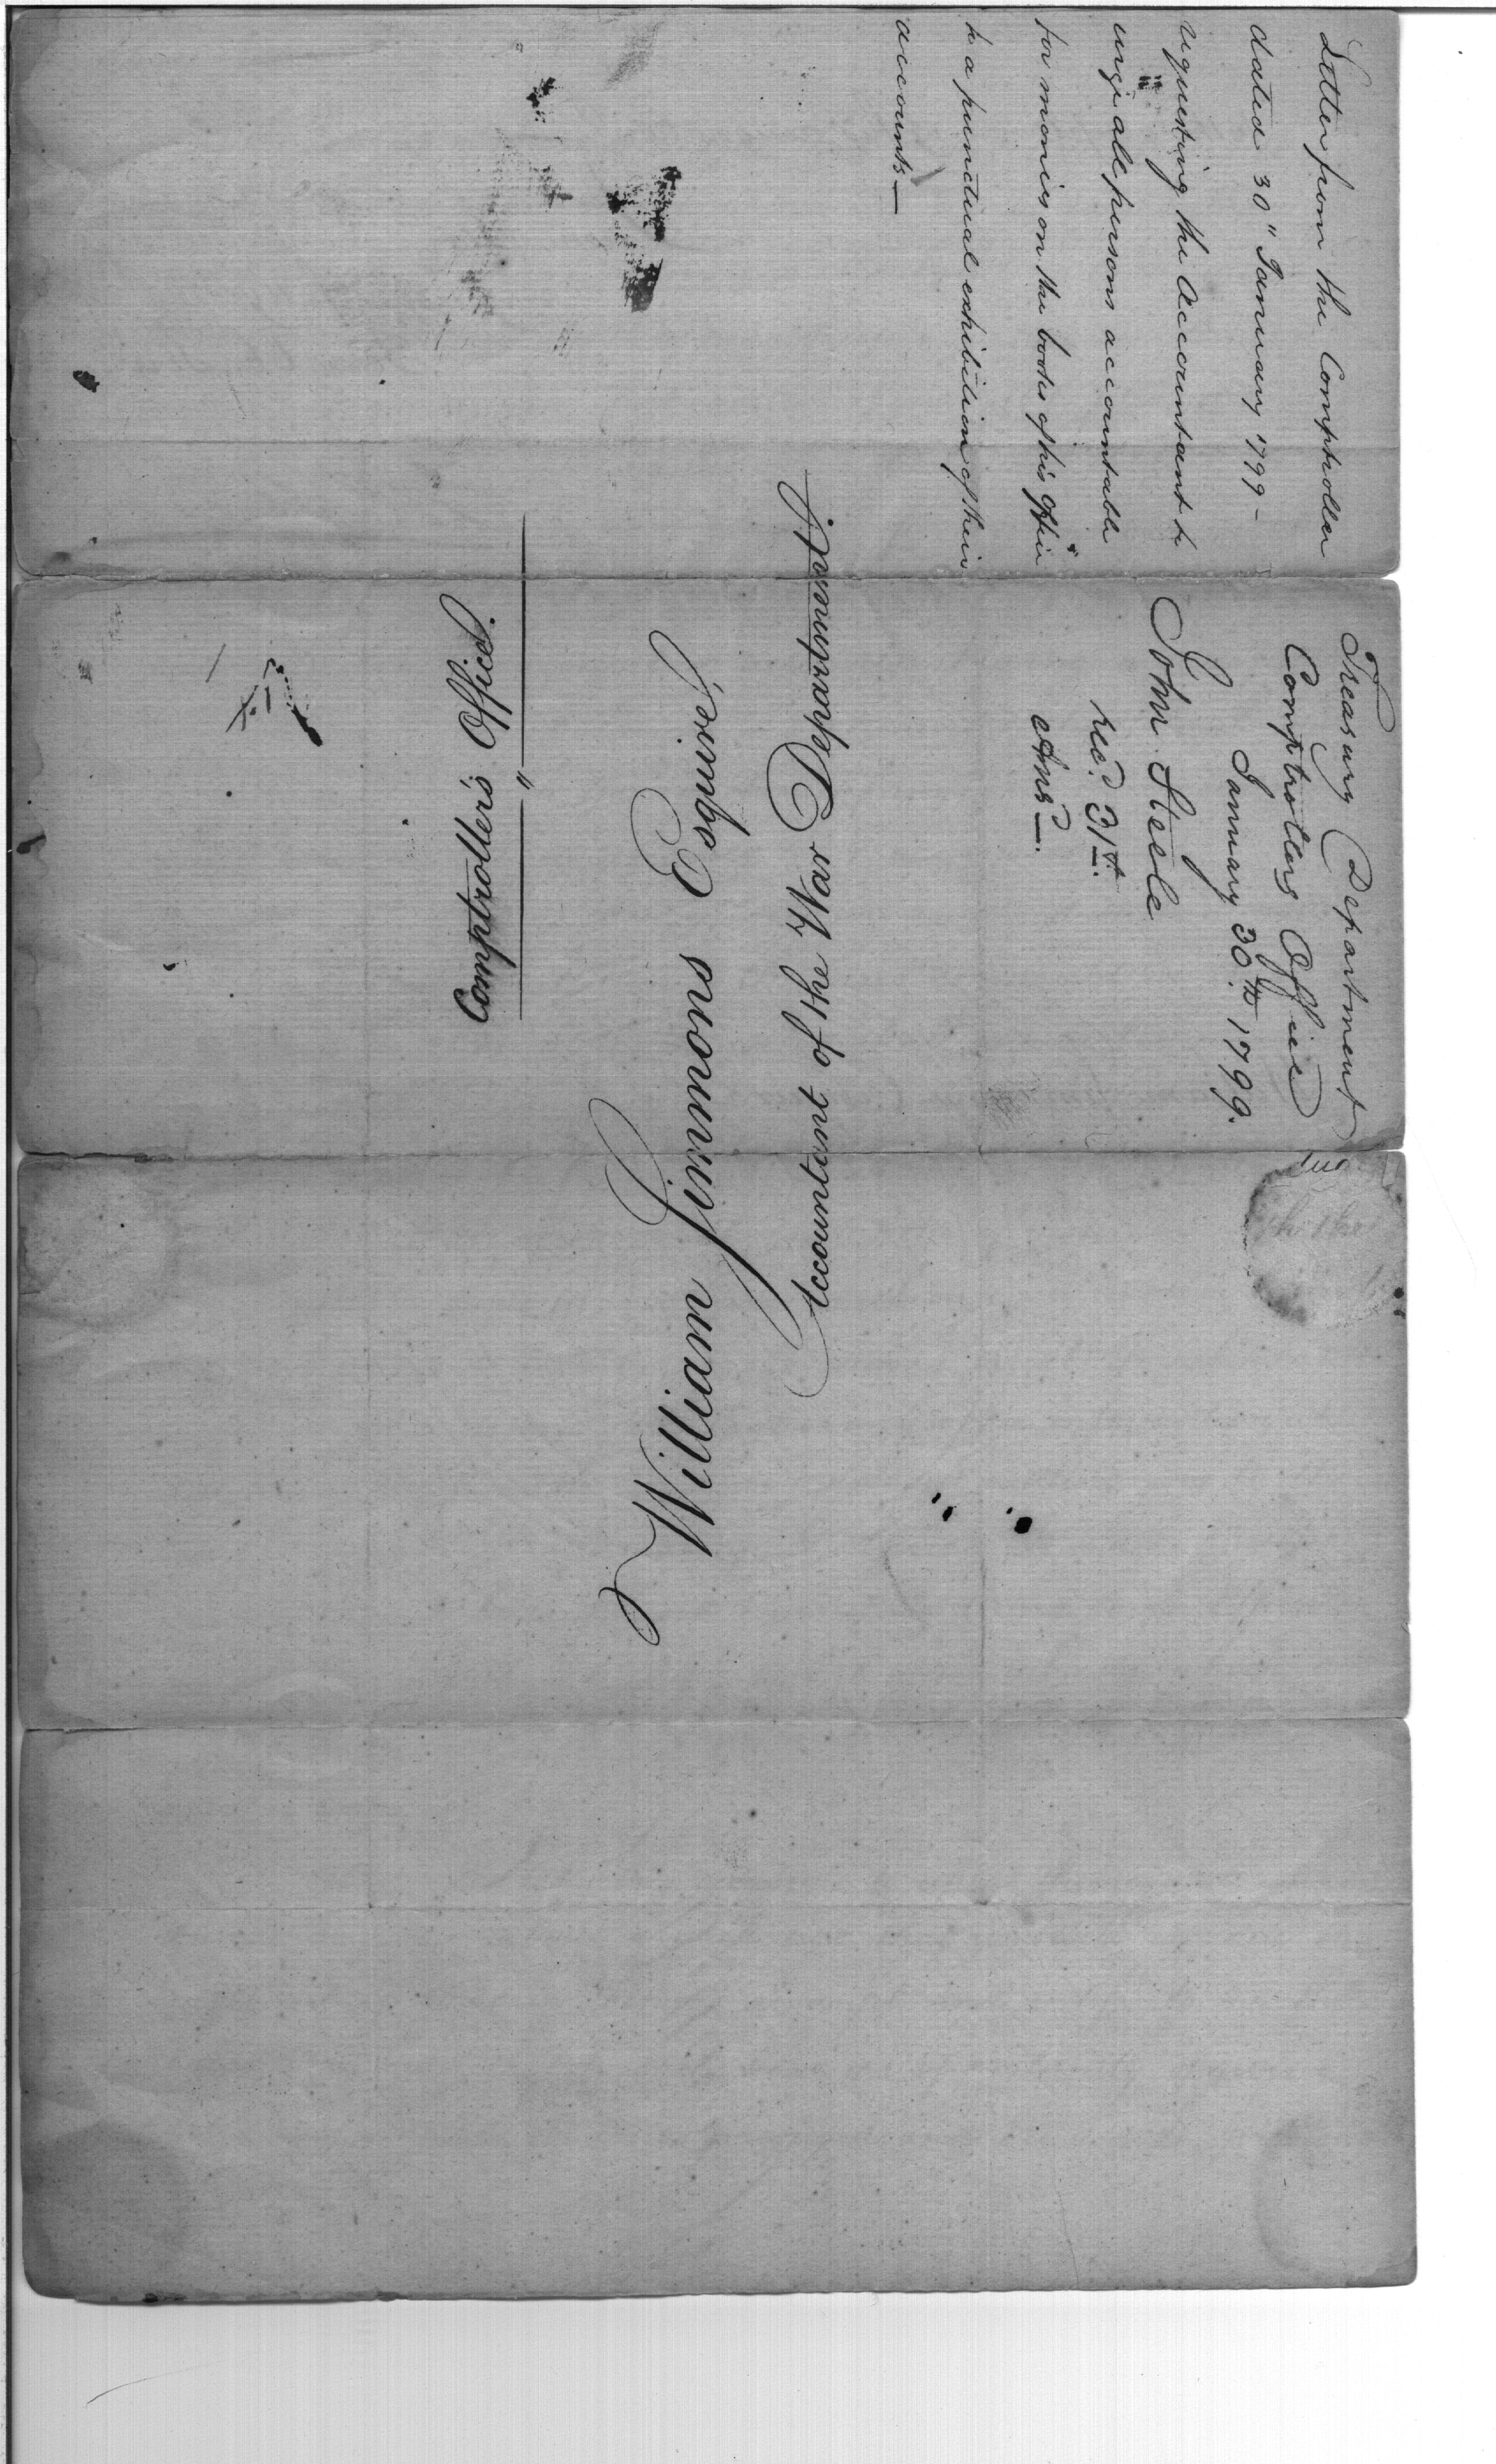 Letter from the Comptroller
dated 30" January 1799 -
requesting the Accountant to
urge all persons accountable
for monies on the books of his Office
to a punctual exhibition of their
accounts —
Treasury Department
Comptrollers Office
January 30th. 1799.
John Steele
Rec'd. 31st.
Ans'd —.
Comptroller's Office.
William Simmons Esquire,
Accountant of the War Department.